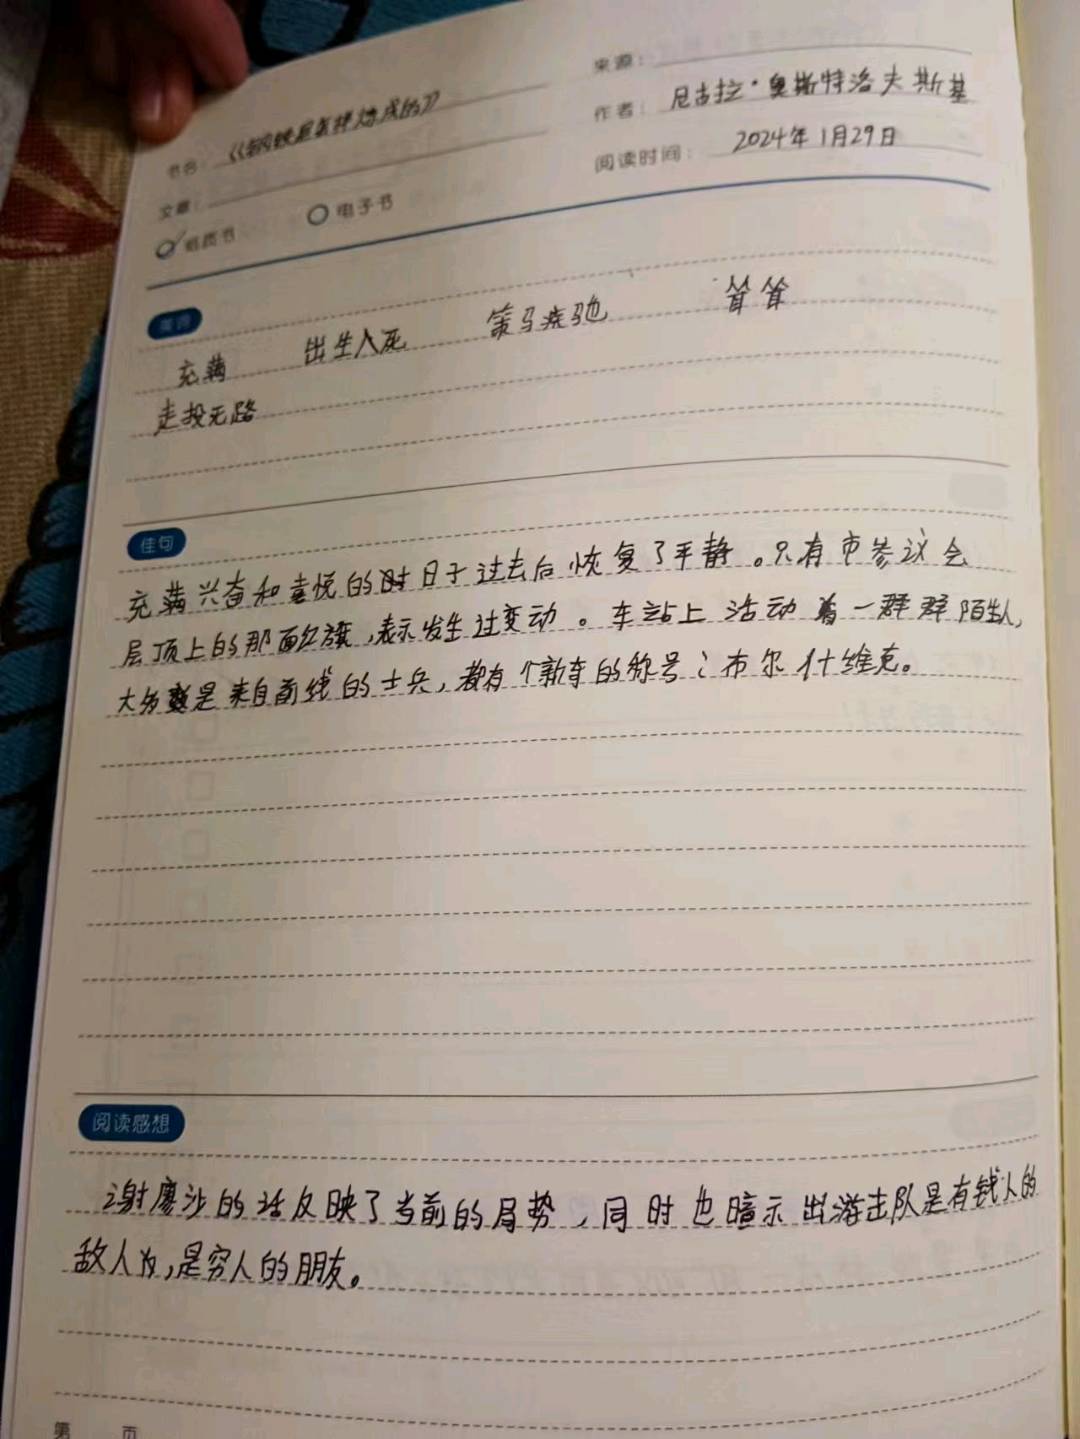 来源：
书名：《钢铁是怎样炼成的》
作者：尼古拉·奥斯特洛夫斯基
文章：
阅读时间：2024年1月29日
纸质书 电子书
美词
充满 出生入死 策马疾驰 耸耸
走投无路
佳句
充满兴奋和喜悦的时日子过去后恢复了平静。只有市参议会
层顶上的那面红旗,表示发生过变动。车站上活动着一群群陌生人,
大多数是来自前线的士兵,都有个新车的称号:布尔什维克。
阅读感想
谢廖沙的话反映了当前的局势,同时也暗示出游击队是有钱人的
敌人为,是穷人的朋友。
第 页